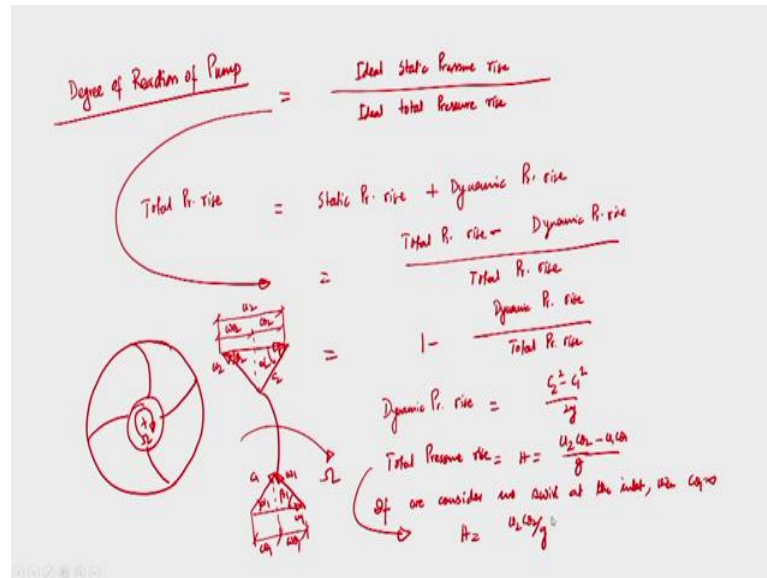 Degree of Reaction of Pump = Ideal Static Pressure rise / Ideal total Pressure rise
Total Pr. rise = Static Pr. rise + Dynamic Pr. rise
= Total Pr. rise - Dynamic Pr. rise / Total Pr. rise
= 1 - Dynamic Pr. rise / Total Pr. rise
Dynamic Pr. rise = C₂² - C₁² / 2g
Total Pressure rise = H = U₂ Cθ₂ - U₁ Cθ₁ / g
If we consider no swirl at the inlet, then Cθ₁=0
H = U₂ Cθ₂/g
U₂
ωθ₂ Cθ₂
ω₂ β₂ α₂ C₂
Ω
Ω
C₁ ω₁
β₁
U₁
Cθ₁ ωθ₁